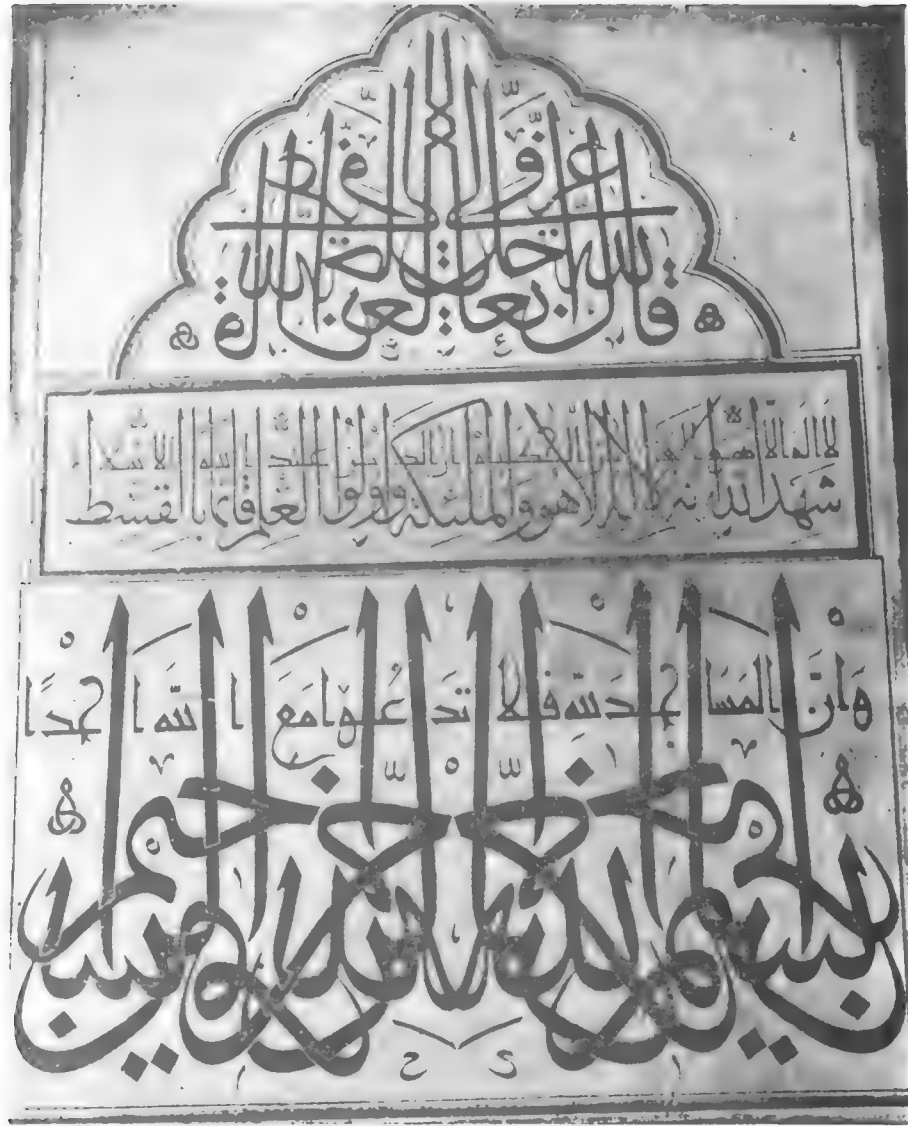 قال الله تعالى
شهد الله انه لا اله الا هو والملئكة واولوا العلم قائما بالقسط
لا اله الا هو العزيز الحكيم ان الدين عند الله الاسلام
وَاَنَّ المَسَاجِدَ لله فَلَا تَدعُوا مَعَ الله اَحَدًا
بسم الله الرحمن الرحيم